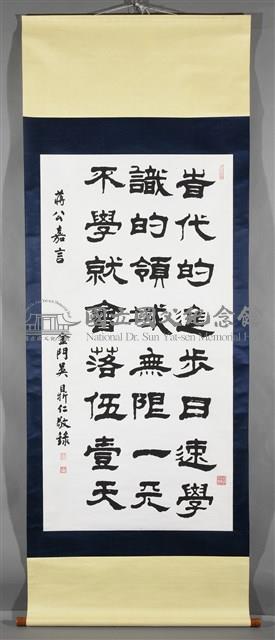 旹代的進步日速學
識的領域無限一天
不學就會落伍壹天
蔣公嘉言
金門吳鼎仁敬錄
國立國父紀念館
National Dr. Sun Yat-sen Memorial H